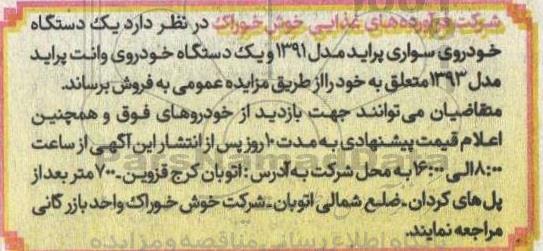 شرکت فرآورده‌های غذایی خوش خوراک در نظر دارد یک دستگاه
خودروی سواری پراید مدل ۱۳۹۱ و یک دستگاه خودروی وانت پراید
مدل ۱۳۹۳ متعلق به خود را از طریق مزایده عمومی به فروش برساند.
متقاضیان می‌توانند جهت بازدید از خودروهای فوق و همچنین
اعلام قیمت پیشنهادی به مدت ۱۰ روز پس از انتشار این آگهی از ساعت
۸:۰۰ الی ۱۶:۰۰ به محل شرکت به آدرس: اتوبان کرج قزوین-۷۰۰ متر بعد از
پل های کردان-ضلع شمالی اتوبان-شرکت خوش خوراک واحد بازرگانی
مراجعه نمایند.
ParsNamadData